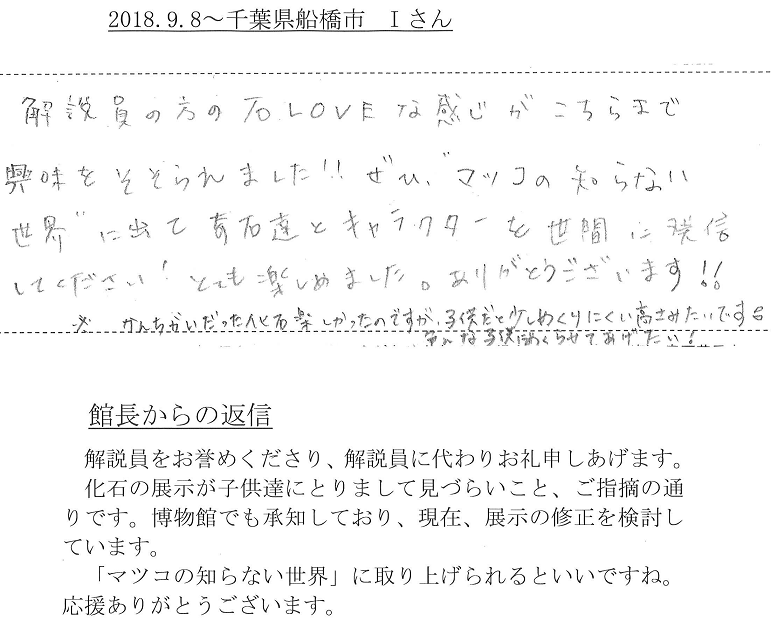 2018.9.8～千葉県船橋市　Iさん
解説員の方の石LOVEな感じがこちらまで
興味をそそられました!!ぜひ、"マツコの知らない
世界"に出て奇石達とキャラクターを世間に発信
してください!とても楽しめました。ありがとうございます!!
※ かんちがいだった化石楽しかったのですが、子供だと少しめくりにくい高さみたいです
子供にめくらせてあげたい!
館長からの返信
解説員をお誉めくださり、解説員に代わりお礼申しあげます。
化石の展示が子供達にとりまして見づらいこと、ご指摘の通
りです。博物館でも承知しており、現在、展示の修正を検討し
ています。
「マツコの知らない世界」に取り上げられるといいですね。
応援ありがとうございます。